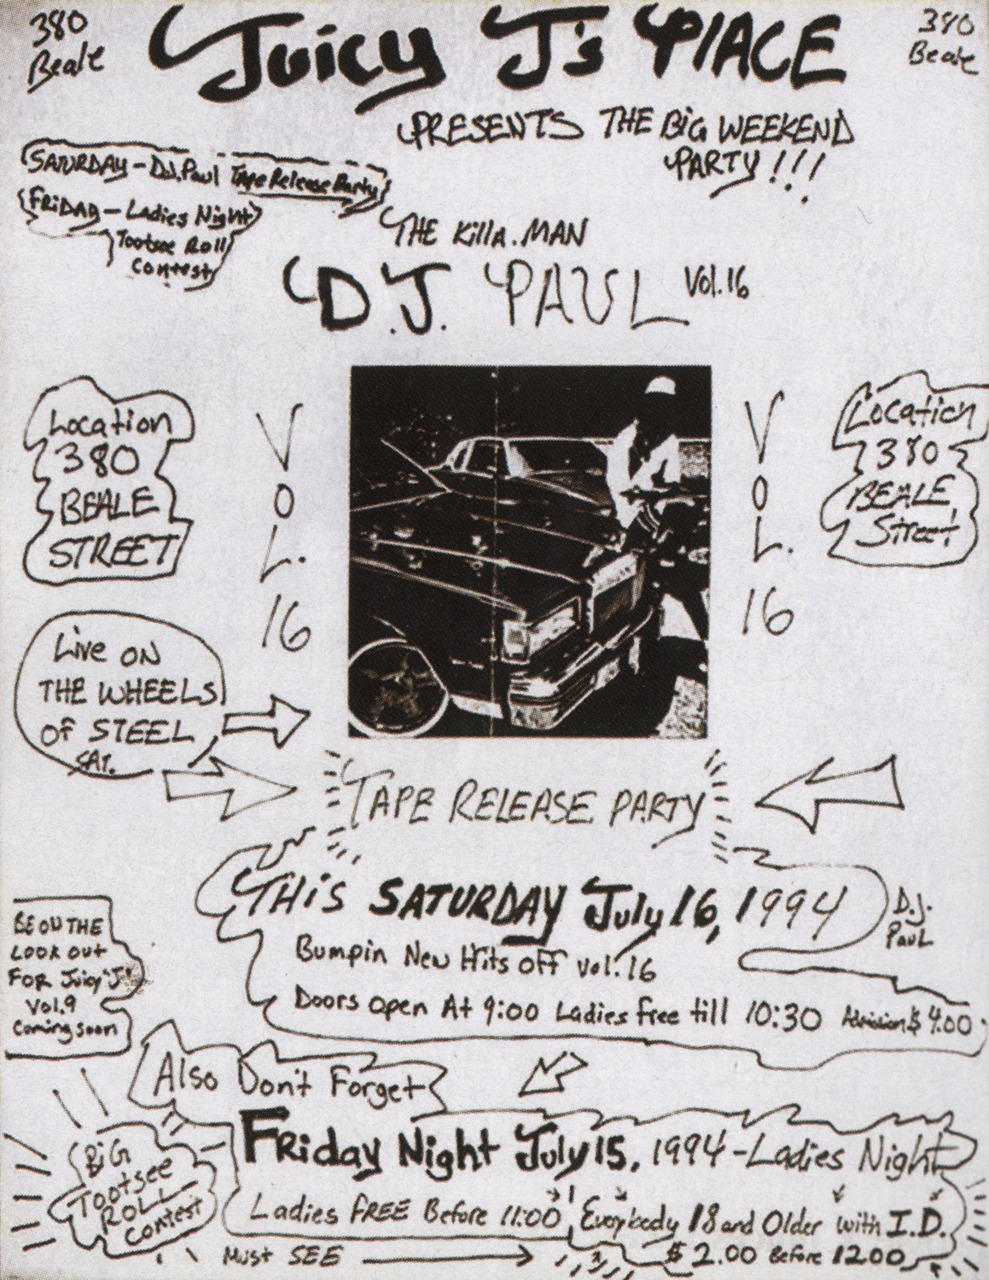 380
Beale
Juicy J's PlACE
380
Beale
PRESENTS THE BiG WEEKEND
PARTY!!!
SATURDAY - D.J. Paul Tape Release Party
FRIDAY - Ladies Night
Tootsee Roll
Contest
THE Killa.MAN
D.J. PAUL Vol.16
Location
380
BEALE
STREET
VOL. 16
VOL. 16
Location
380
BEALE
Street
Live ON
THE WHEELS
Of STEEL
SAT.
TAPE RELEASE PARTY
THiS SATURDAY July 16, 1994
D.J.
PAUL
Bumpin New Hits off vol. 16
Doors open At 9:00 Ladies free till 10:30 Admission $4.00
BE ON THE
LOOK OUT
FOR Juicy "J's"
Vol.9
Coming soon
Also Don't Forget
FRiday Night July 15, 1994 - Ladies Night
BiG
Tootsee
ROLL
Contest
Ladies FREE Before 11:00 ! Everybody 18 and Older with I.D.
Must SEE
$2.00 Before 12.00